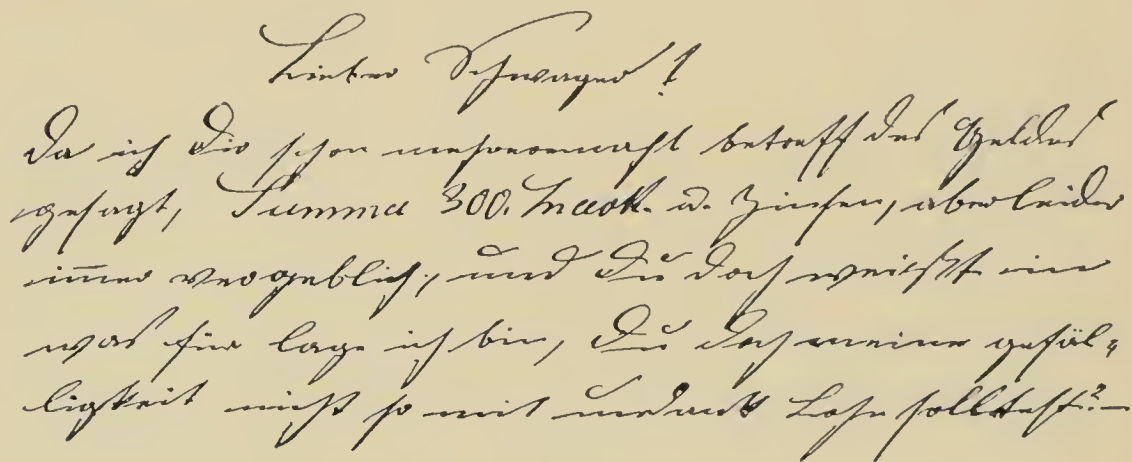 Lieber Schwager!
Da ich Dir schon mehreremahl betreff des Geldes
gesagt, Summa 300. Mark. u. Zinsen, aber leider
im̅er vergeblich, und Du doch weißt in
was für lage ich bin, Du doch meine gefäl-
ligkeit nicht so mit undank Lohn solltest?—